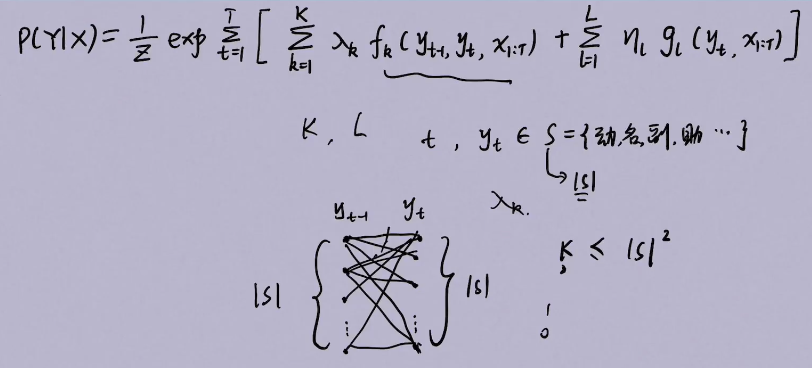 P(Y|X) = 1/Z exp ∑_{t=1}^{T} [ ∑_{k=1}^{K} λ_k f_k(y_{t-1}, y_t, x_{1:T}) + ∑_{l=1}^{L} η_l g_l(y_t, x_{1:T}) ]
K, L t, y_t ∈ S = {动, 名, 副, 助 …}
|S|
y_{t-1} y_t λ_k.
K ≤ |S|²
|S| |S|
1
0